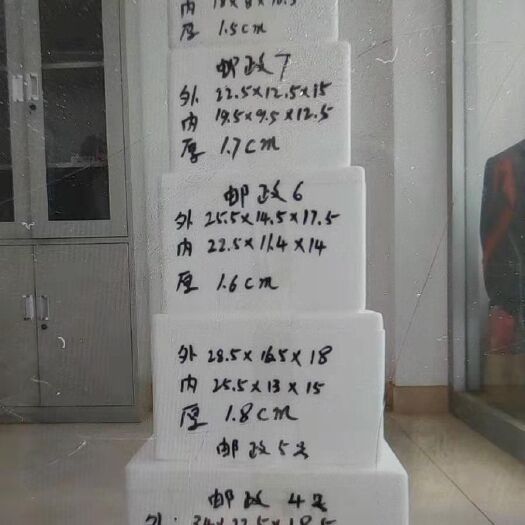 内 18×8×10.5
厚 1.5cm
邮政7
外 22.5×12.5×15
内 19.5×9.5×12.5
厚 1.7cm
邮政6
外 25.5×14.5×17.5
内 22.5×11.4×14
厚 1.6cm
外 28.5×16.5×18
内 25.5×13×15
厚 1.8cm
邮政5号
邮政4号
外：34×22.5×18.5